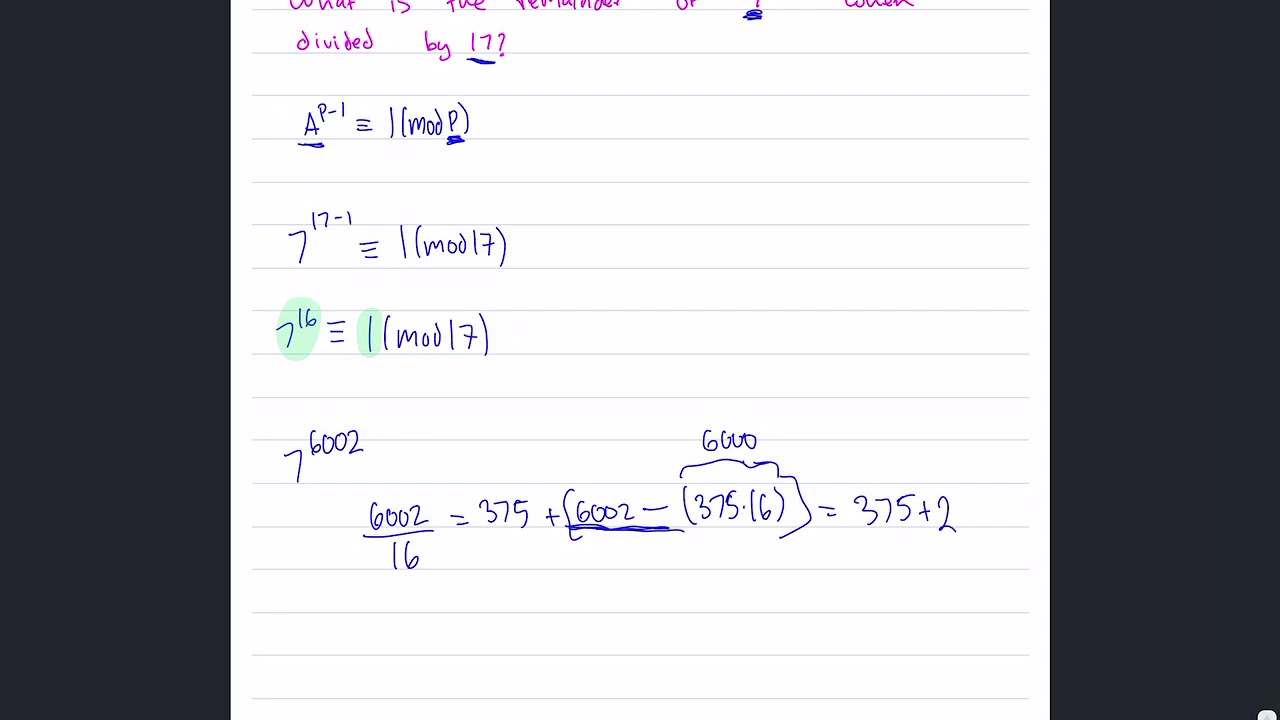 What is the remainder of 7 when
divided by 17?
A^{P-1} ≡ 1(mod P)
7^{17-1} ≡ 1(mod 17)
7^{16} ≡ 1(mod 17)
7^{6002}
6000
6002/16 = 375 + (6002 - (375·16)) = 375+2